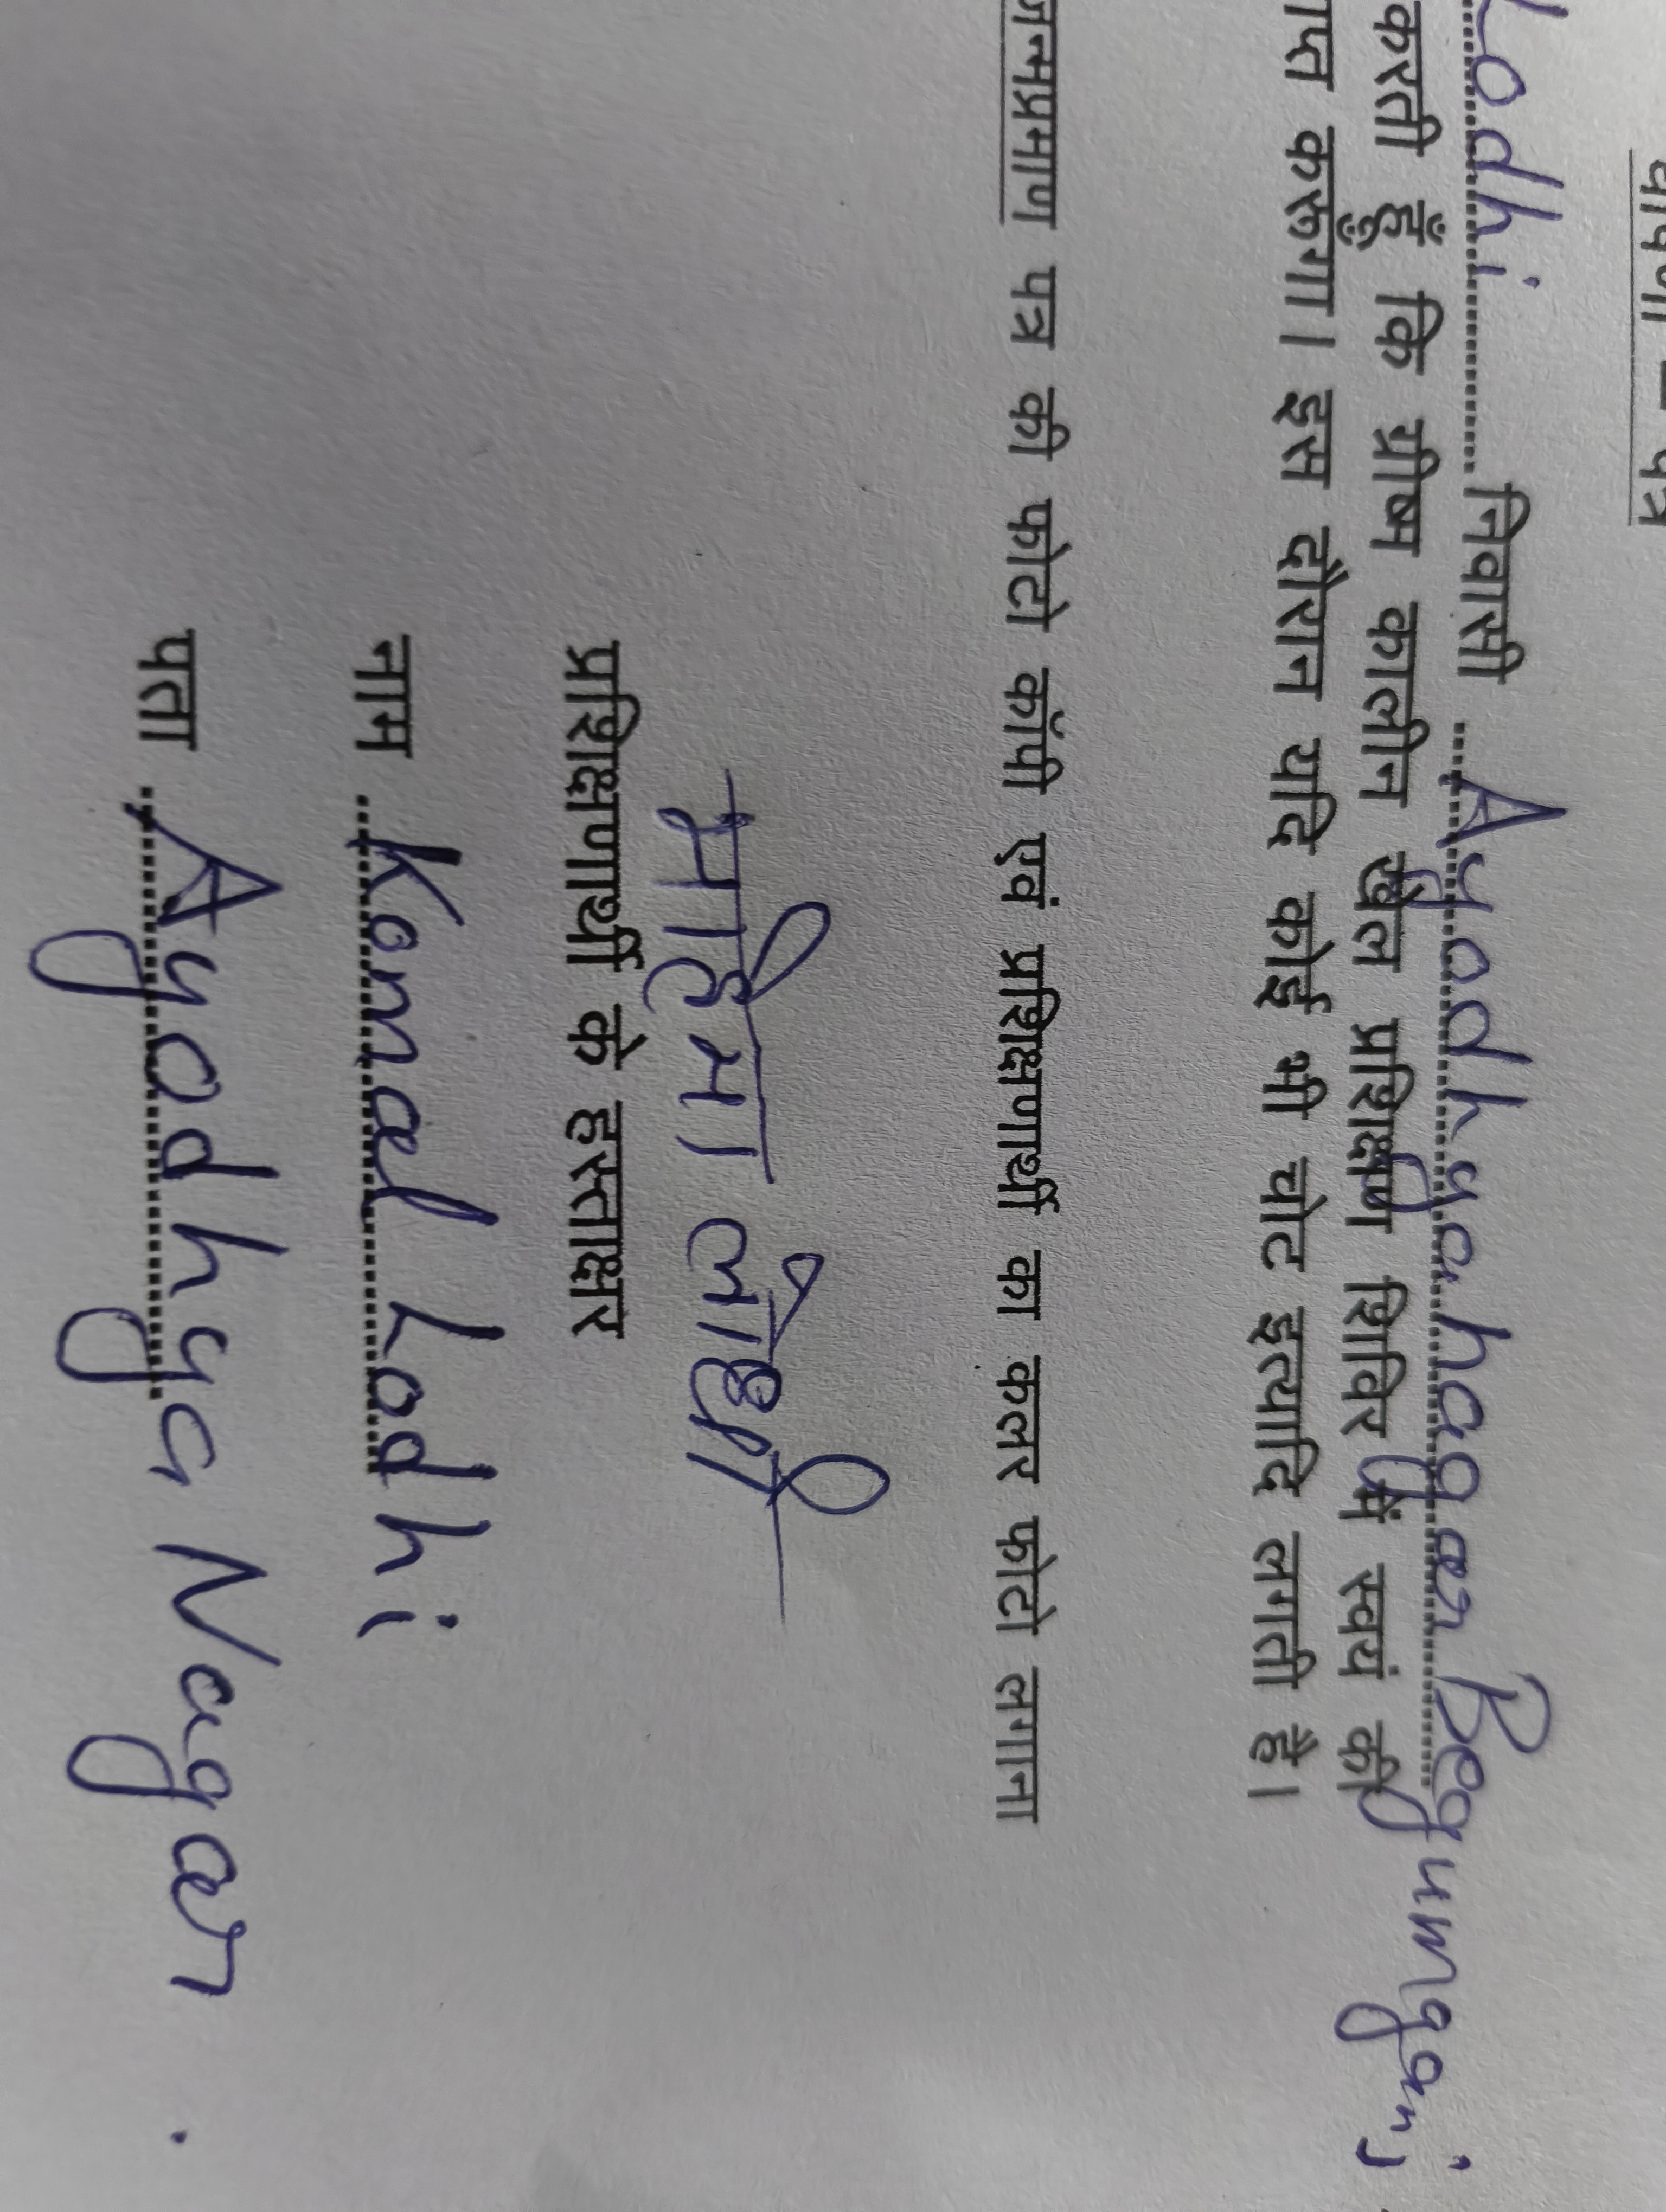 घोषणा – पत्र
Lodhi निवासी Ayodhyanagar Begumganj
करती हूँ कि ग्रीष्म कालीन खेल प्रशिक्षण शिविर में स्वयं की
करूंगा। इस दौरान यदि कोई भी चोट इत्यादि लगती है।
जन्मप्रमाण पत्र की फोटो कॉपी एवं प्रशिक्षणार्थी का कलर फोटो लगाना
महिमा लोधी
प्रशिक्षणार्थी के हस्ताक्षर
नाम Komal Lodhi
पता Ayodhya Nagar